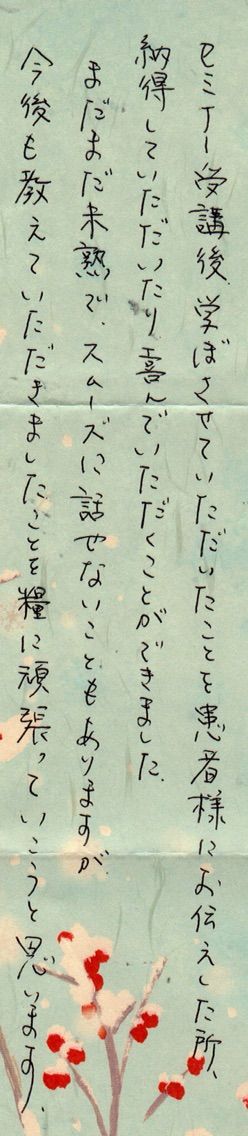 セミナー受講後、学ばさせていただいたことを患者様にお伝えした所、
納得していただいたり喜んでいただくことができました。
まだまだ未熟で、スムーズに話せないこともありますが
今後も教えていただきましたことを糧に頑張っていこうと思います。